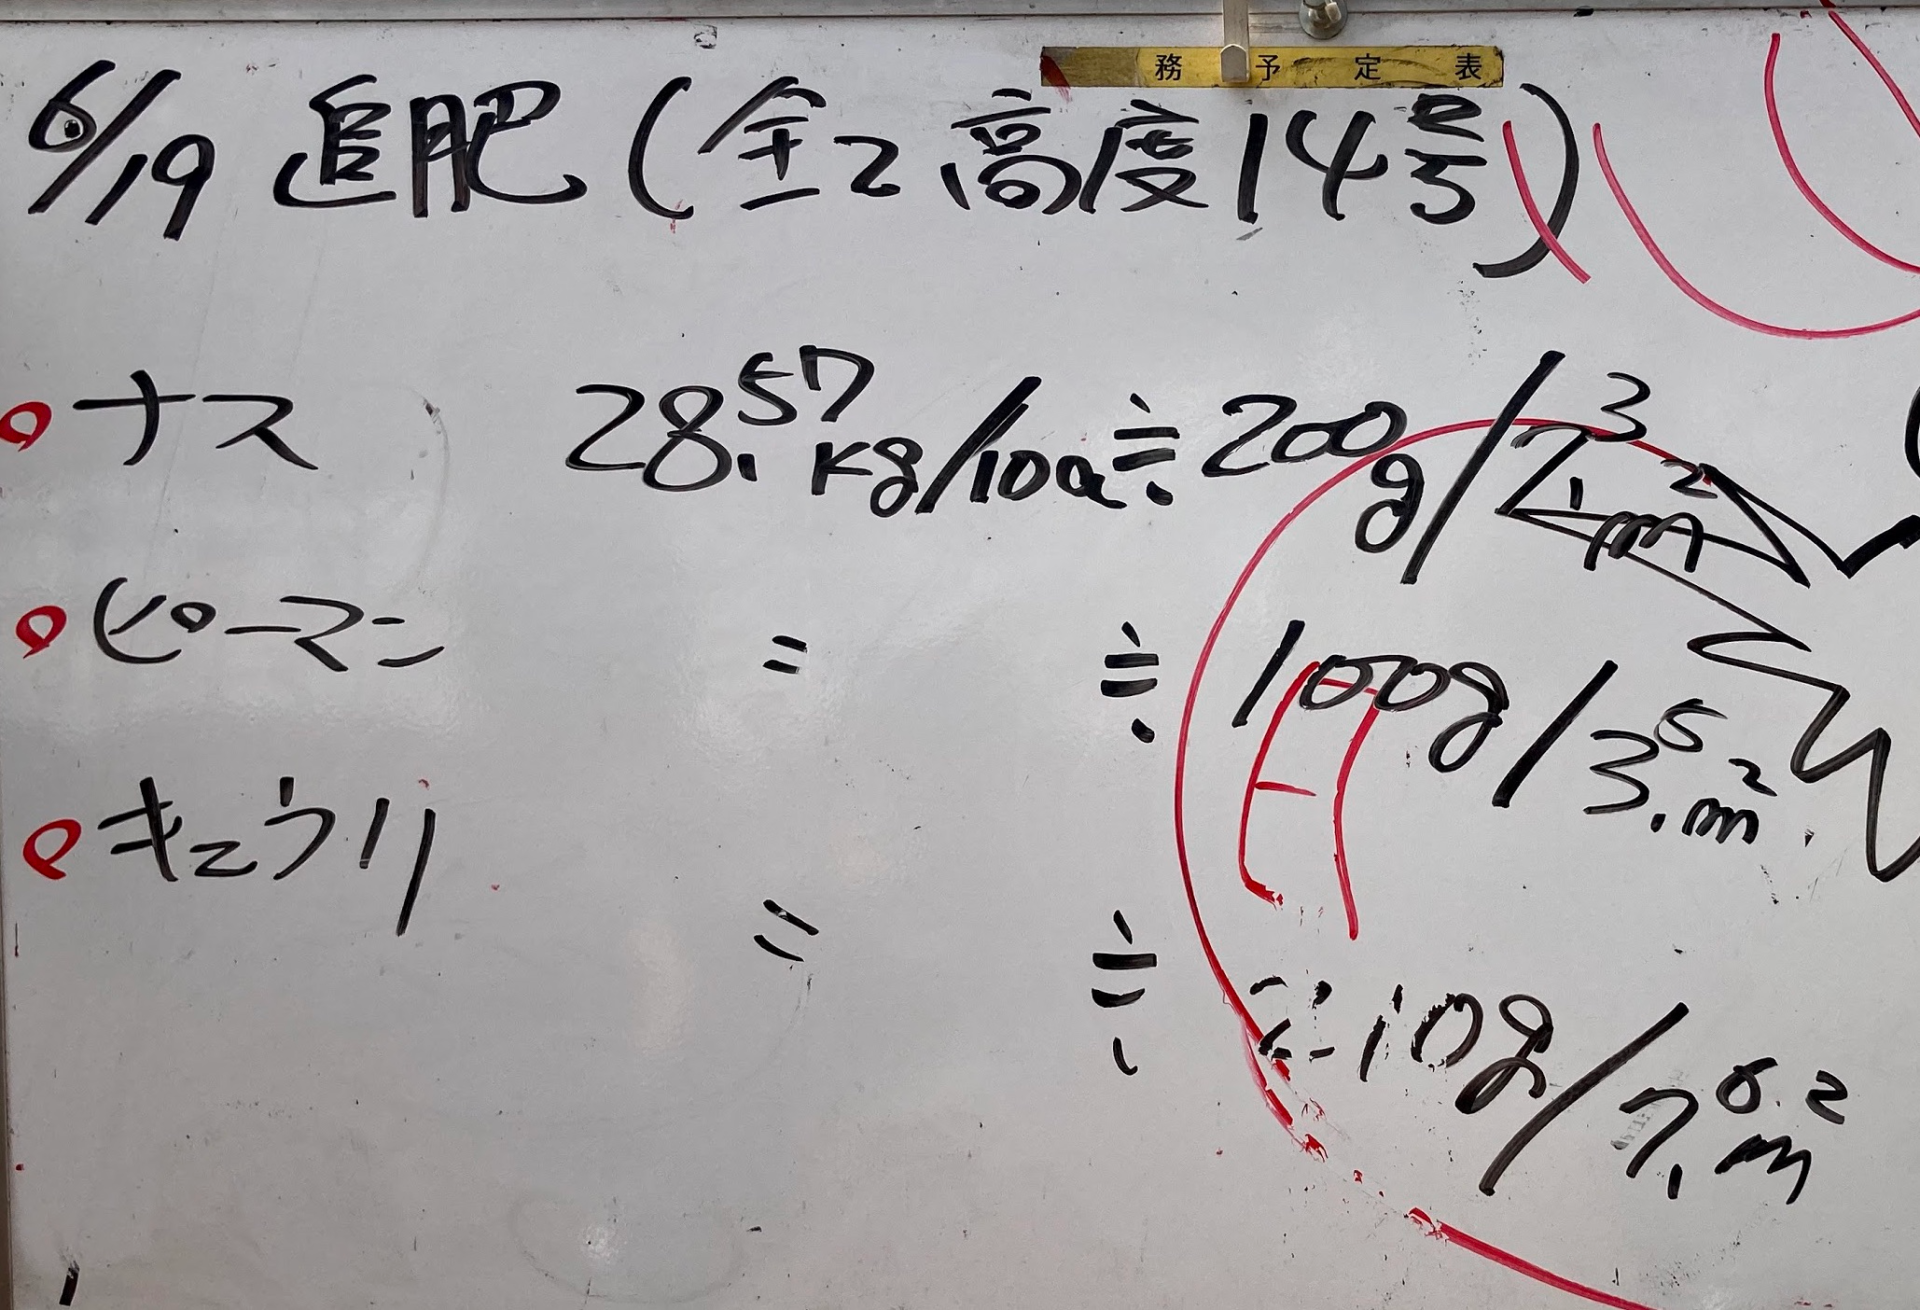 務予定表
6/19 追肥(全て高度14号)
ナス 28.57kg/10a≒200g/7.3m²
ピーマン 〃 ≒100g/3.5m²
きゅうり 〃 ≒210g/7.6m²